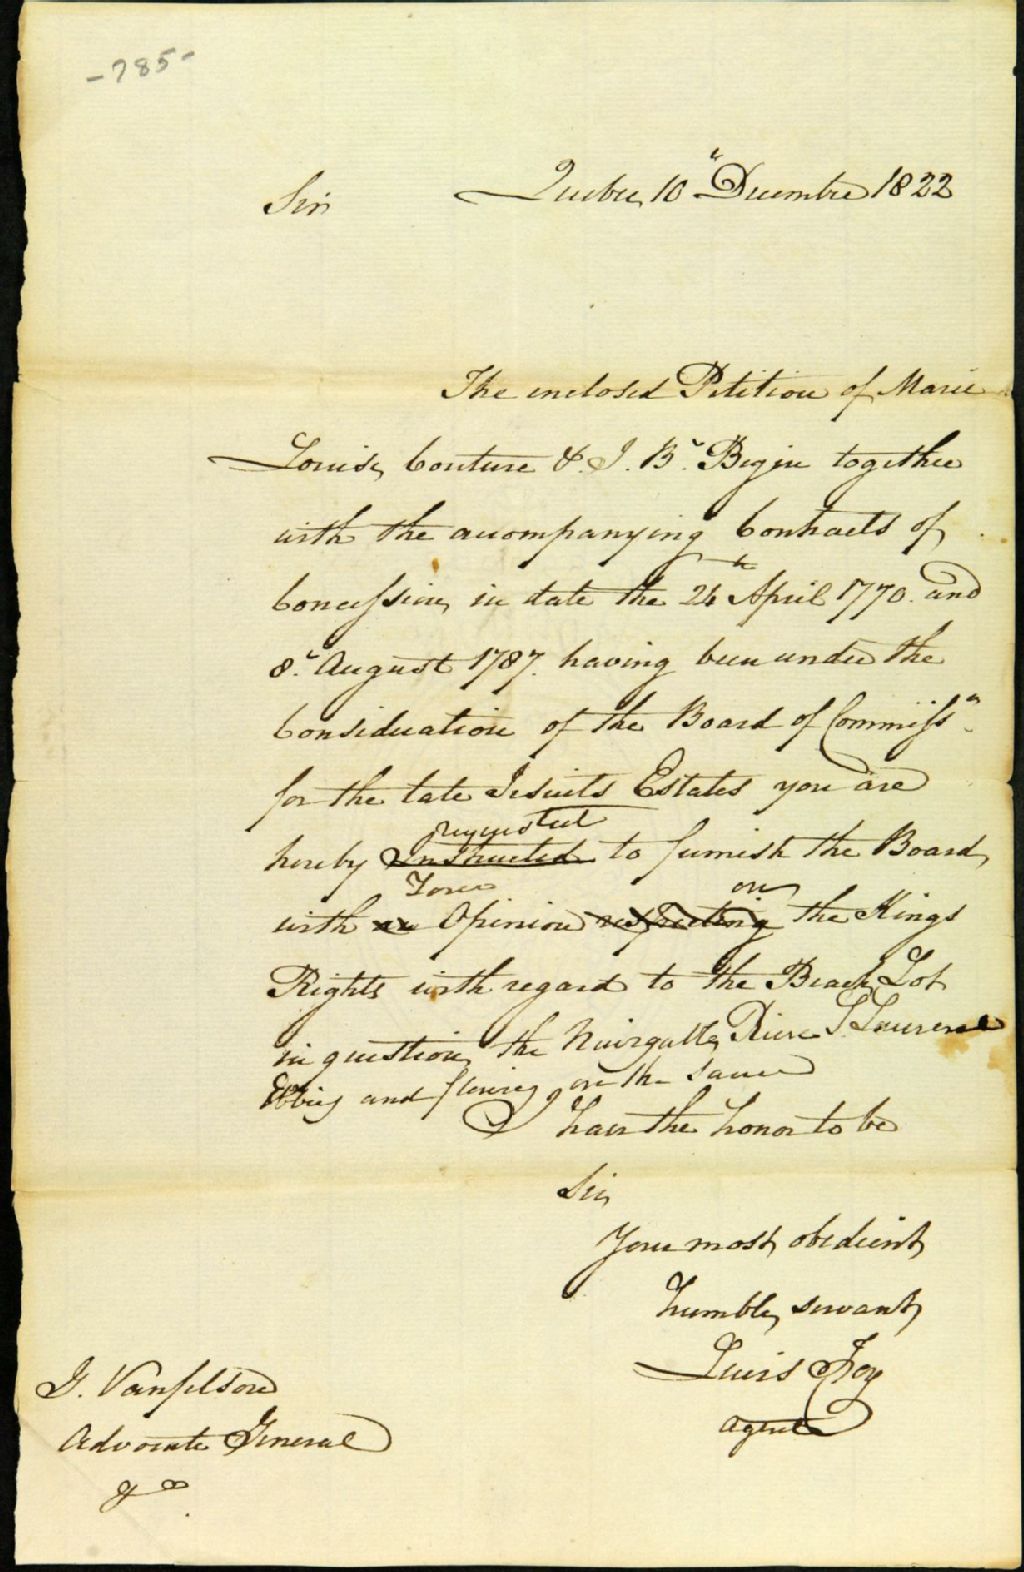 -785-
Sir Quebec 10th Decembre 1822
The inclosed Petition of Marie
Louise Couture & J. Bte Begin together
with the accompanying Contracts of
Concession in date the 24th April 1770 and
8th August 1787. having been under the
Consideration of the Board of Commissrs
for the late Jesuits Estates you are
requested
hereby Instructed to furnish the Board
Your on
with an Opinion respecting the Kings
Rights with regard to the Beach Lot
in question, the Navigable River St Laurence
Ebbing and flowing on the same
I have the honor to be
Sir
Your most obedient
humble servant
Louis Foy
Agent
G. Vanfelson
Advocate General
&c